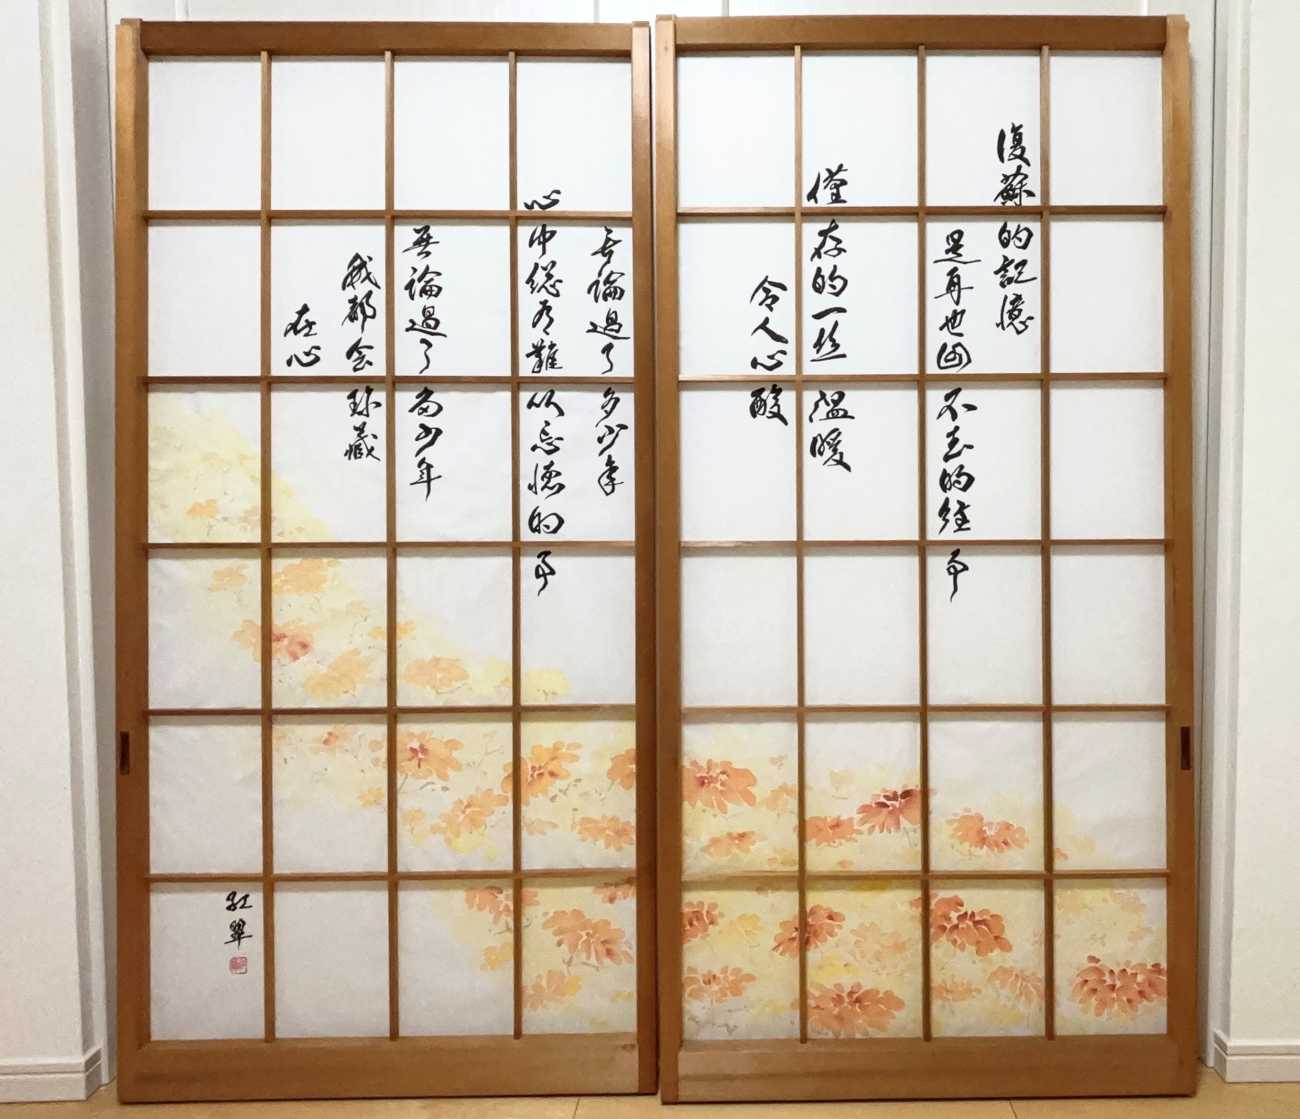 復蘇的記憶
是再也回不去的往事
僅存的一丝温暖
令人心酸
无論過了多少年
心中総有難以忘懐的事
無論過了多少年
我都会珍藏
在心
紅翠